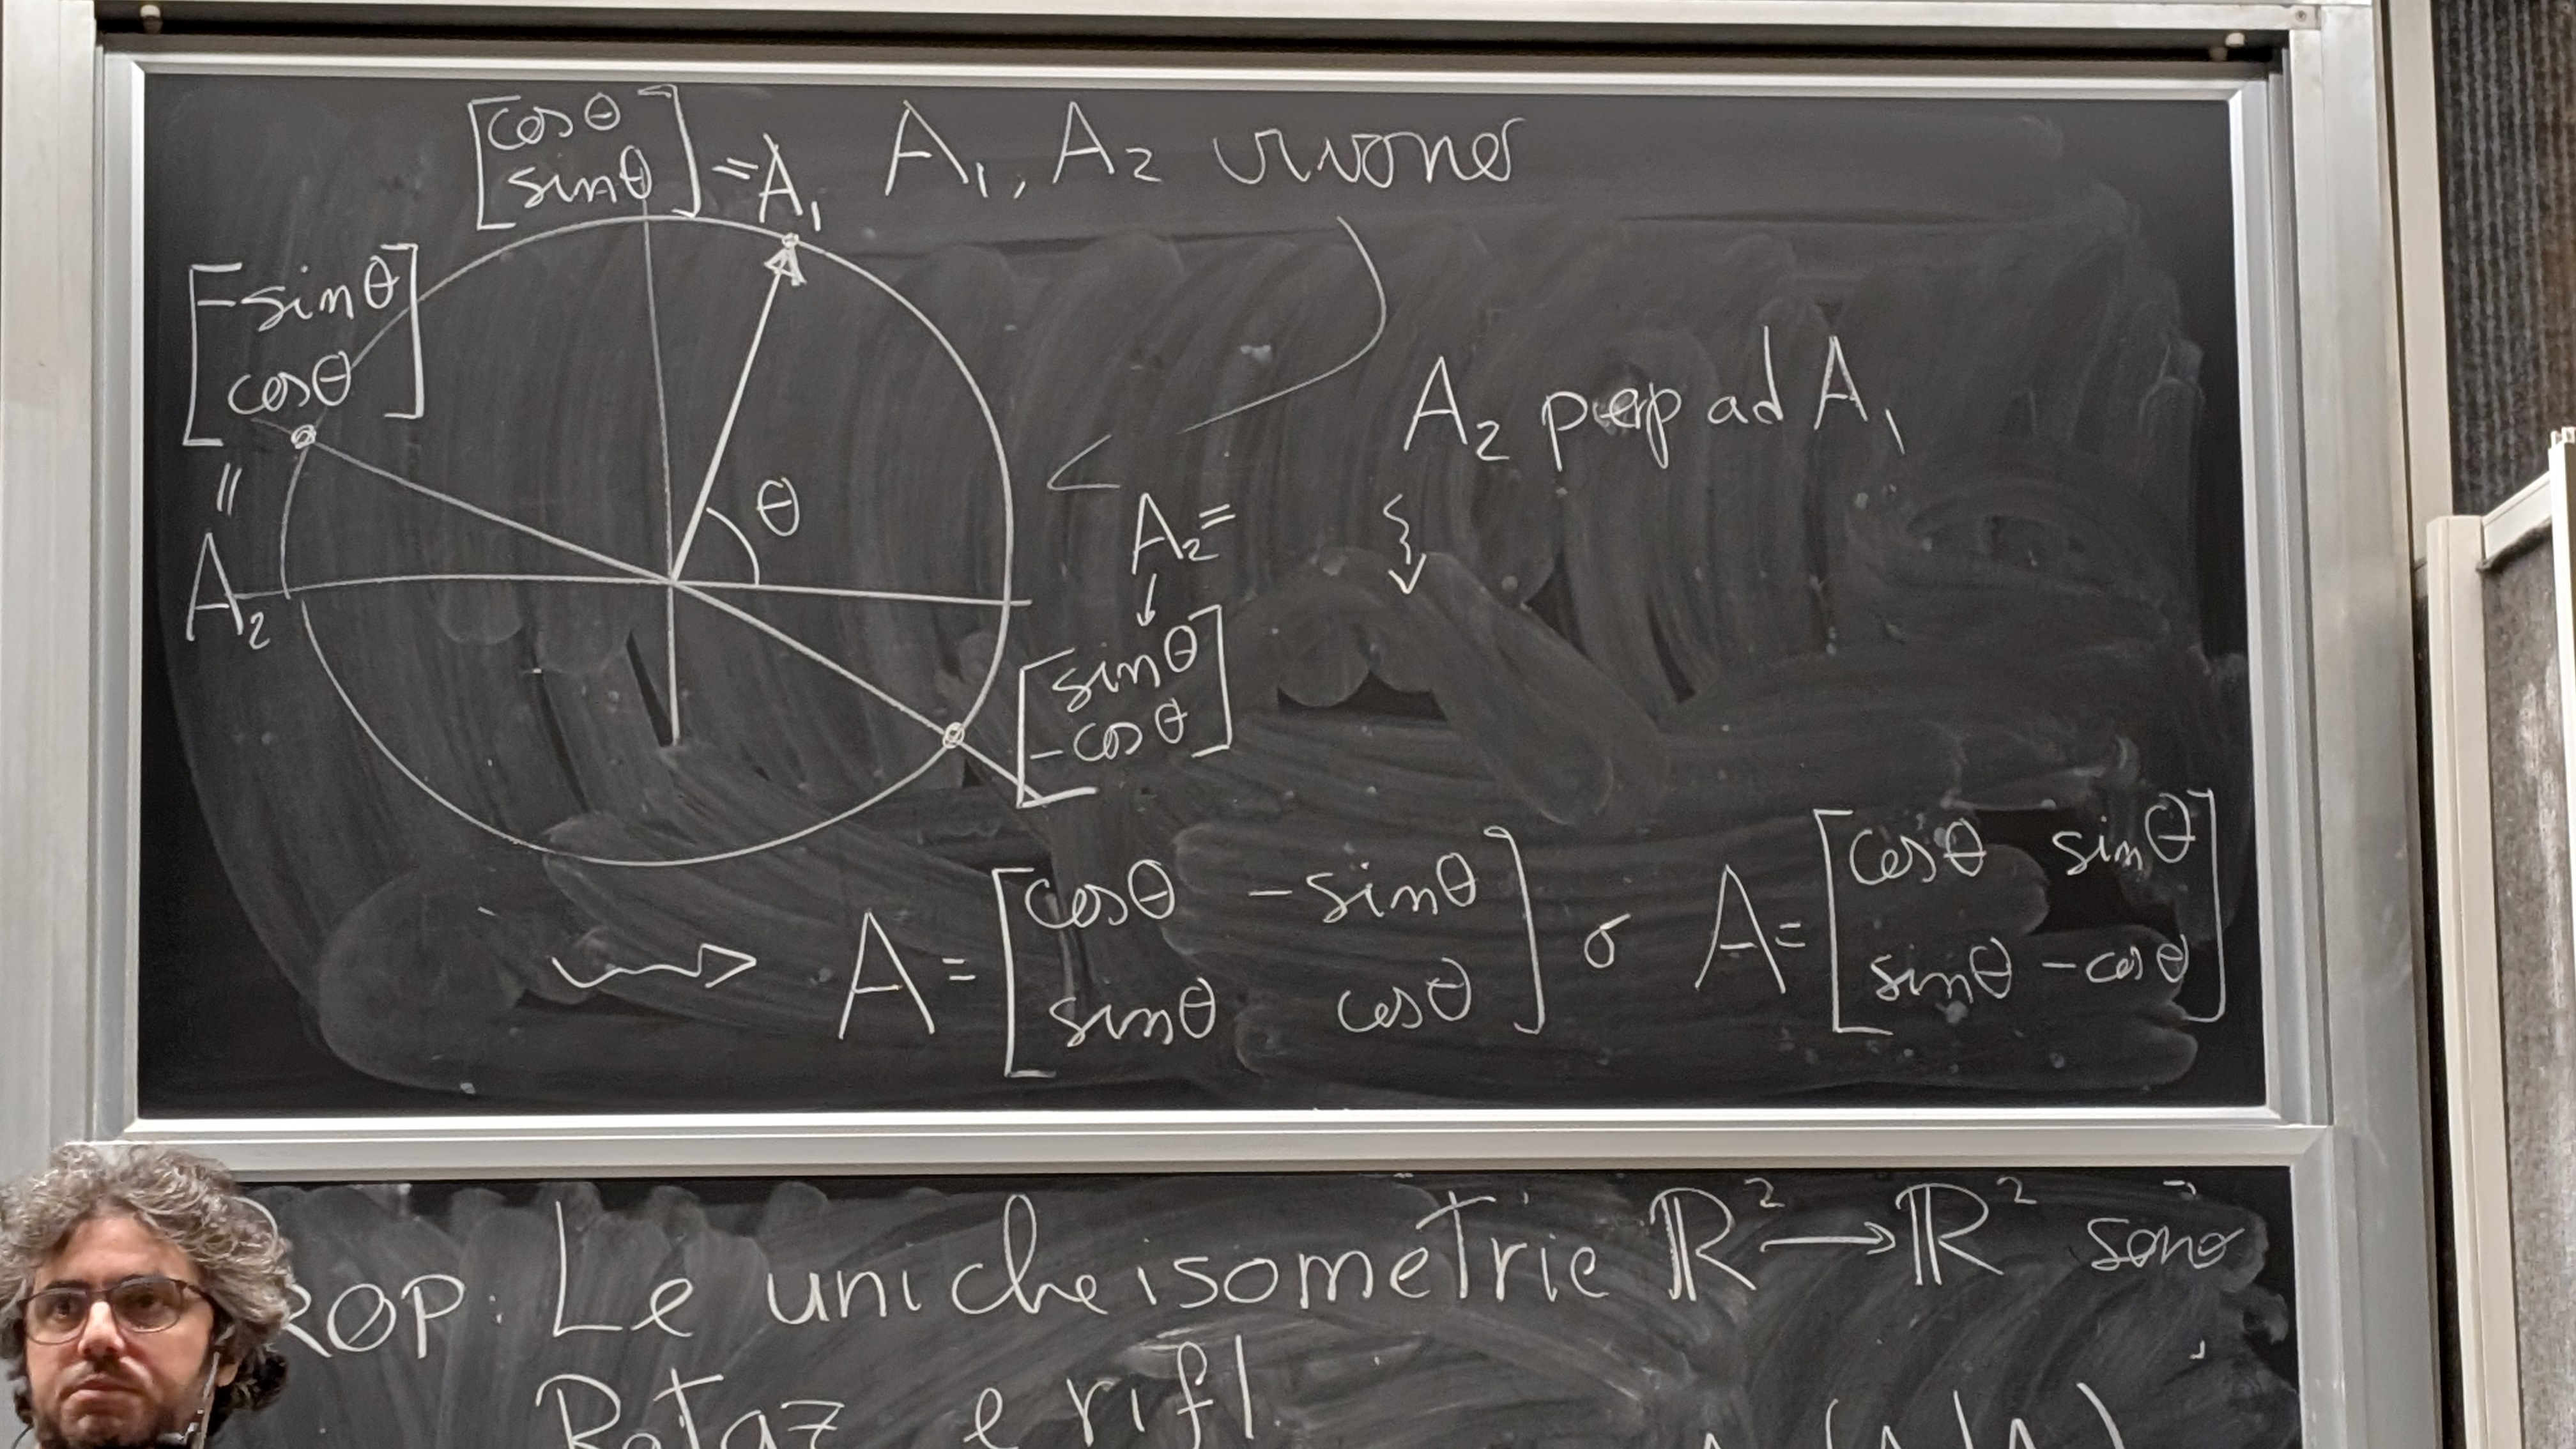 [cosθ
sinθ] = A₁
A₁, A₂ vivono
[-sinθ
cosθ]
=
A₂
θ
A₂ perp ad A₁
A₂=
[sinθ
-cosθ]
A = [cosθ -sinθ
sinθ cosθ] o A = [cosθ sinθ
sinθ -cosθ]
ROP: Le uniche isometrie ℝ² → ℝ² sono
Rotaz e rifl.